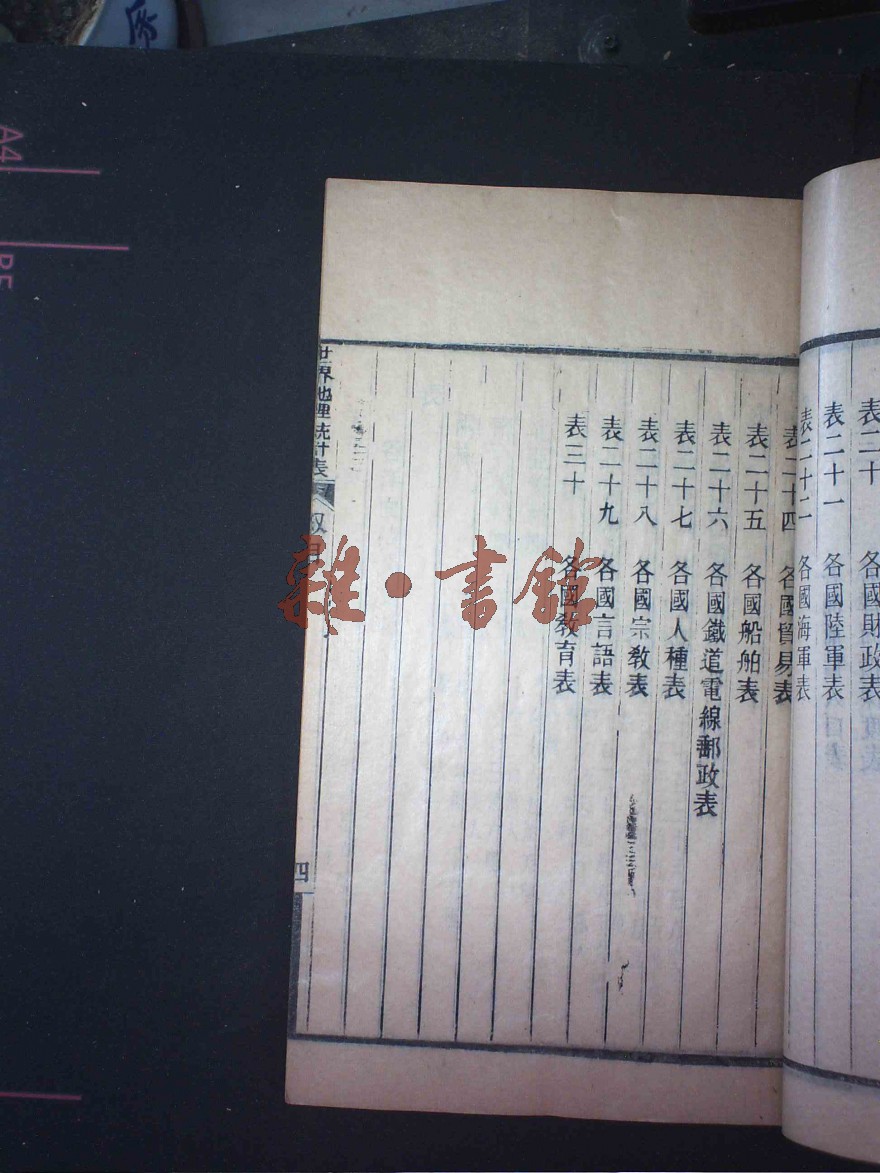 表二十 各國財政表
表二十一 各國陸軍表
表二十二 各國海軍表
表二十四 各國貿易表
表二十五 各國船舶表
表二十六 各國鐵道電線郵政表
表二十七 各國人種表
表二十八 各國宗教表
表二十九 各國言語表
表三十 各國教育表
世界地理統計表
四
雜·書館
A4
B5